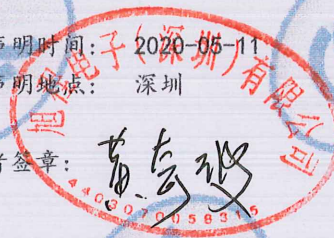 声明时间: 2020-05-11
声明地点: 深圳
签章:
电子(深圳)有限公司
4403070058315